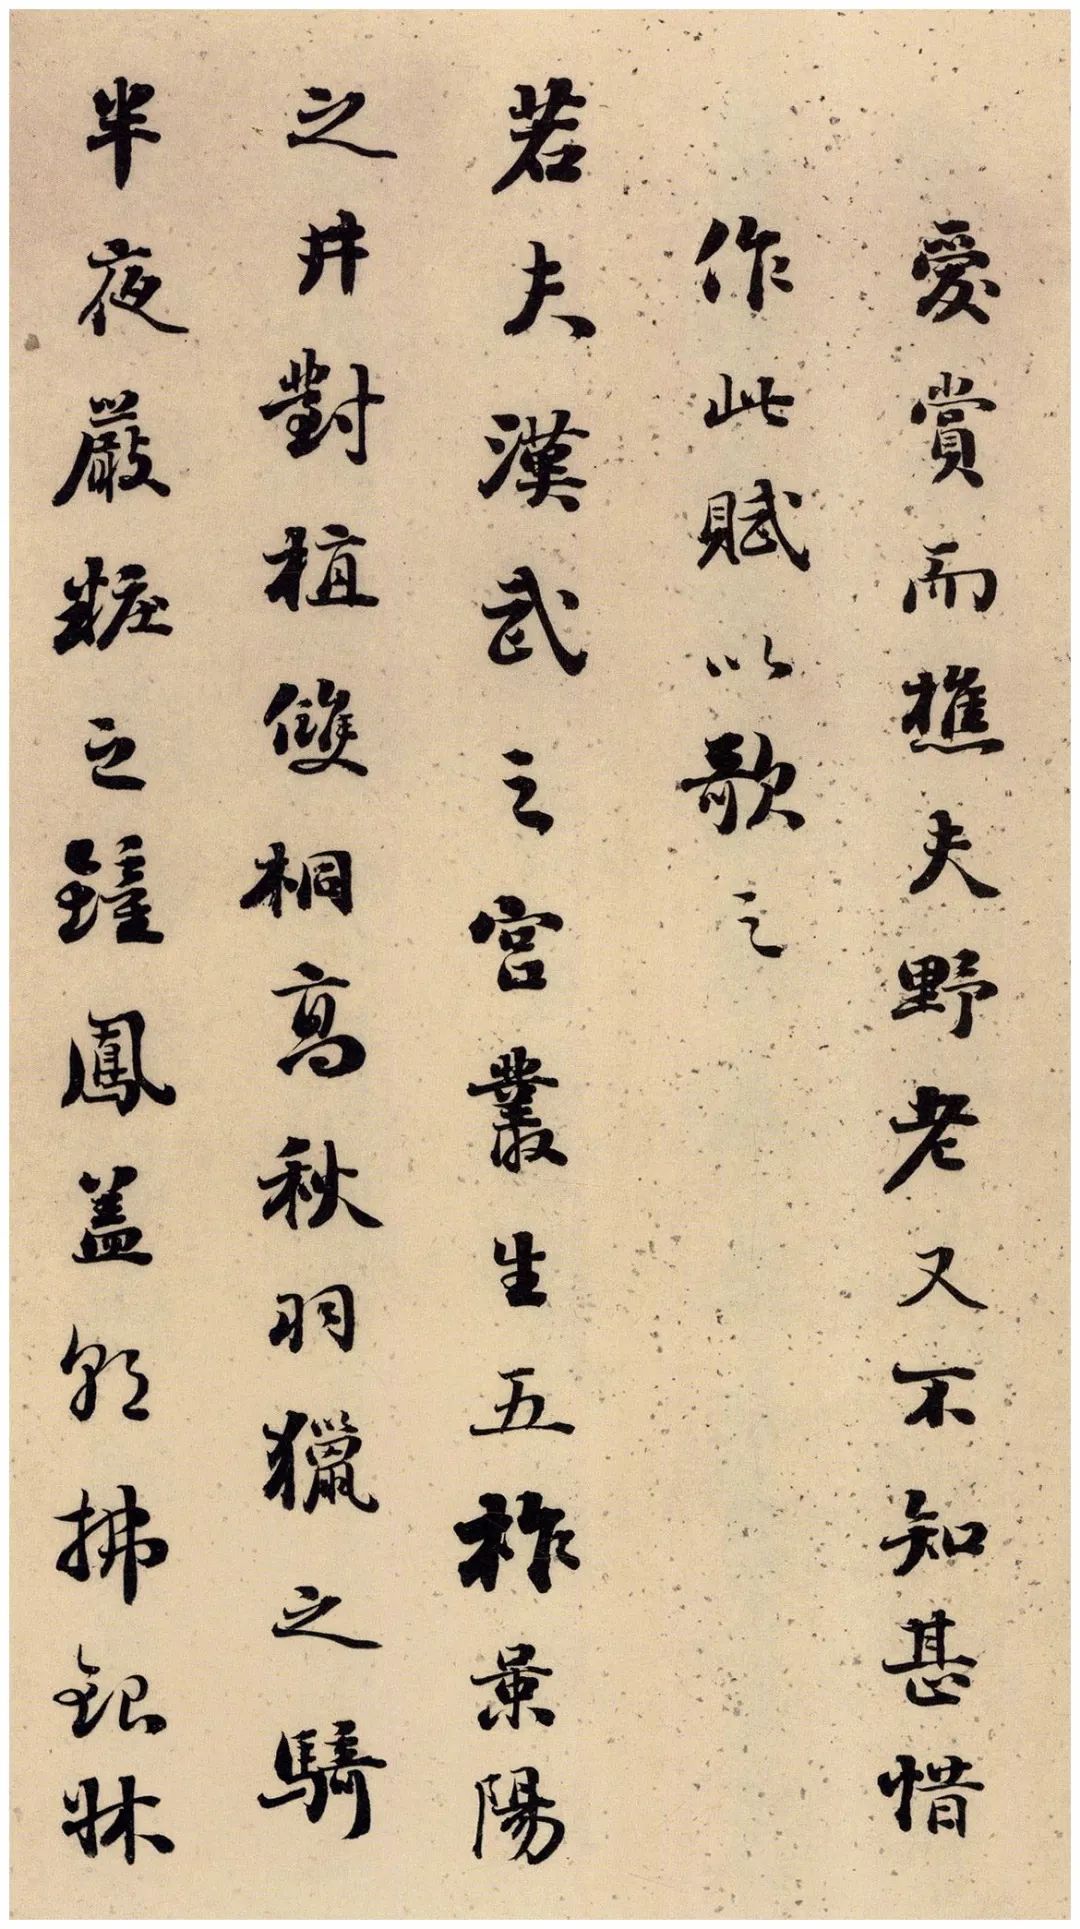 愛賞而樵夫野老又不知甚惜
作此賦以歌之
若夫漢武之宮叢生五祚景陽
之井對植雙桐高秋羽獵之騎
半夜嚴粧之鐘鳳蓋朝拂銀牀